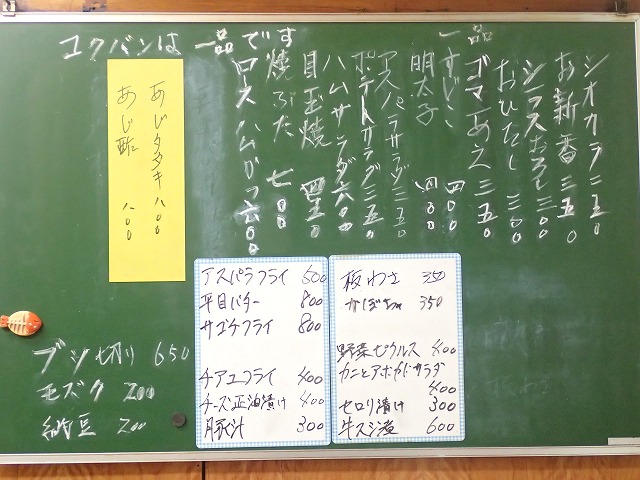 コクバンは一品です
一品
シオカラ 三五〇
お新香 三五〇
シラスおろし 三〇〇
おひたし 三〇〇
ゴマあえ 三五〇
すじこ 四〇〇
明太子 四〇〇
アスパラサラダ 三五〇
ポテトサラダ 三五〇
ハムサラダ 六〇〇
目玉焼
焼ぶた 七〇〇
ロースハムかつ 六〇〇
あじタタキ 八〇〇
あじ酢 八〇〇
アスパラフライ 500
平目バター 800
サゴチフライ 800
チアユフライ 400
チーズ正油漬け 400
豚汁 300
板わさ 350
かぼちゃ 350
野菜ピクルス 400
カニとアボガドサラダ
400
セロリ漬け 300
牛スジ煮 600
ブツ切り 650
モズク 200
納豆 200